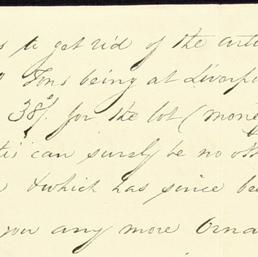 s to get rid of the arti
Tons being at Liverpo
38/. for the lot (mone
can surely be no oth
which has since be
you any more Orna